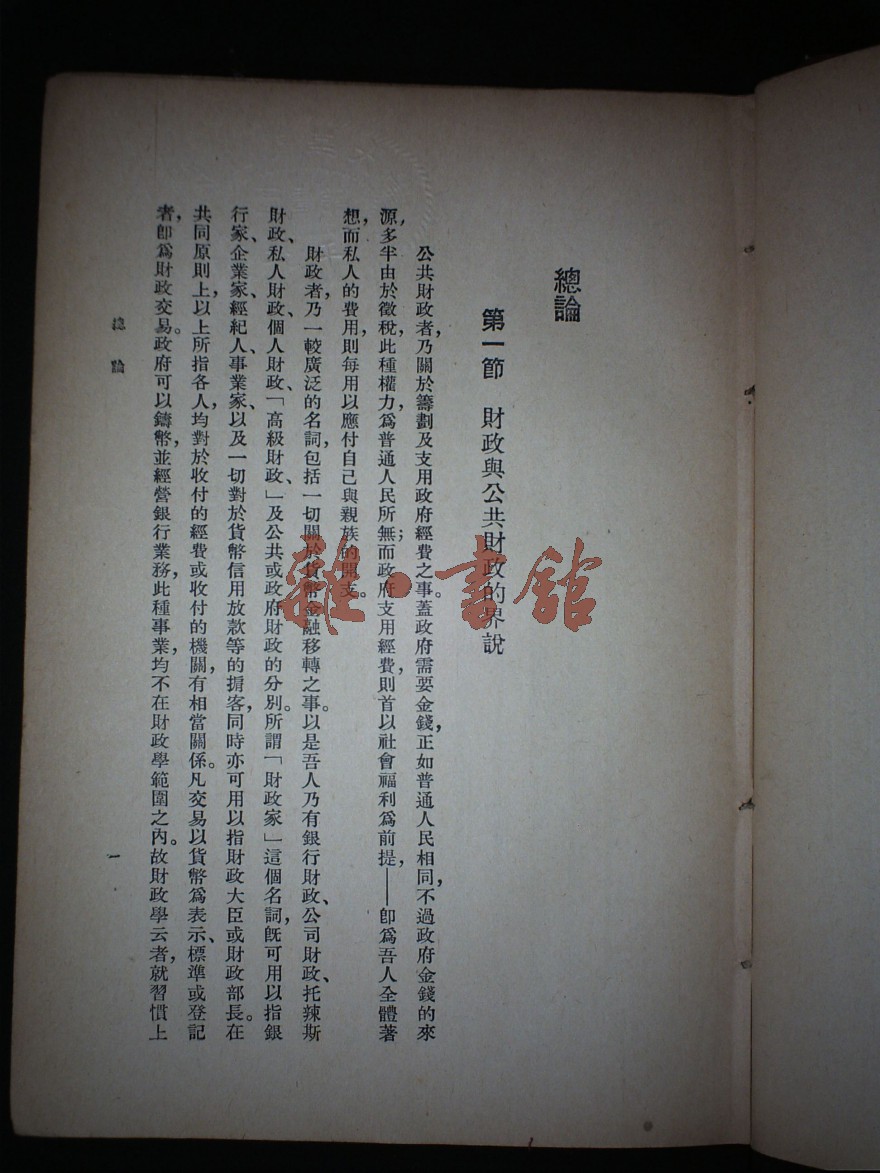 總論
第一節　財政與公共財政的界說
公共財政者，乃關於籌劃及支用政府經費之事。蓋政府需要金錢，正如普通人民相同，不過政府金錢的來
源，多半由於徵稅，此種權力，爲普通人民所無；而政府支用經費，則首以社會福利爲前提，——卽爲吾人全體著
想，而私人的費用，則每用以應付自己與親族的開支。
財政者，乃一較廣泛的名詞，包括一切關於貨幣金融移轉之事。以是吾人乃有銀行財政、公司財政、托辣斯
財政、私人財政、個人財政、「高級財政、」及公共或政府財政的分別。所謂「財政家」這個名詞，旣可用以指銀
行家、企業家、經紀人、事業家、以及一切對於貨幣信用放款等的掮客，同時亦可用以指財政大臣或財政部長。在
共同原則上，以上所指各人，均對於收付的經費或收付的機關，有相當關係。凡交易以貨幣爲表示、標準或登記
者，卽爲財政交易。政府可以鑄幣，並經營銀行業務，此種事業，均不在財政學範圍之內。故財政學云者，就習慣上
總論
一
雜·書館